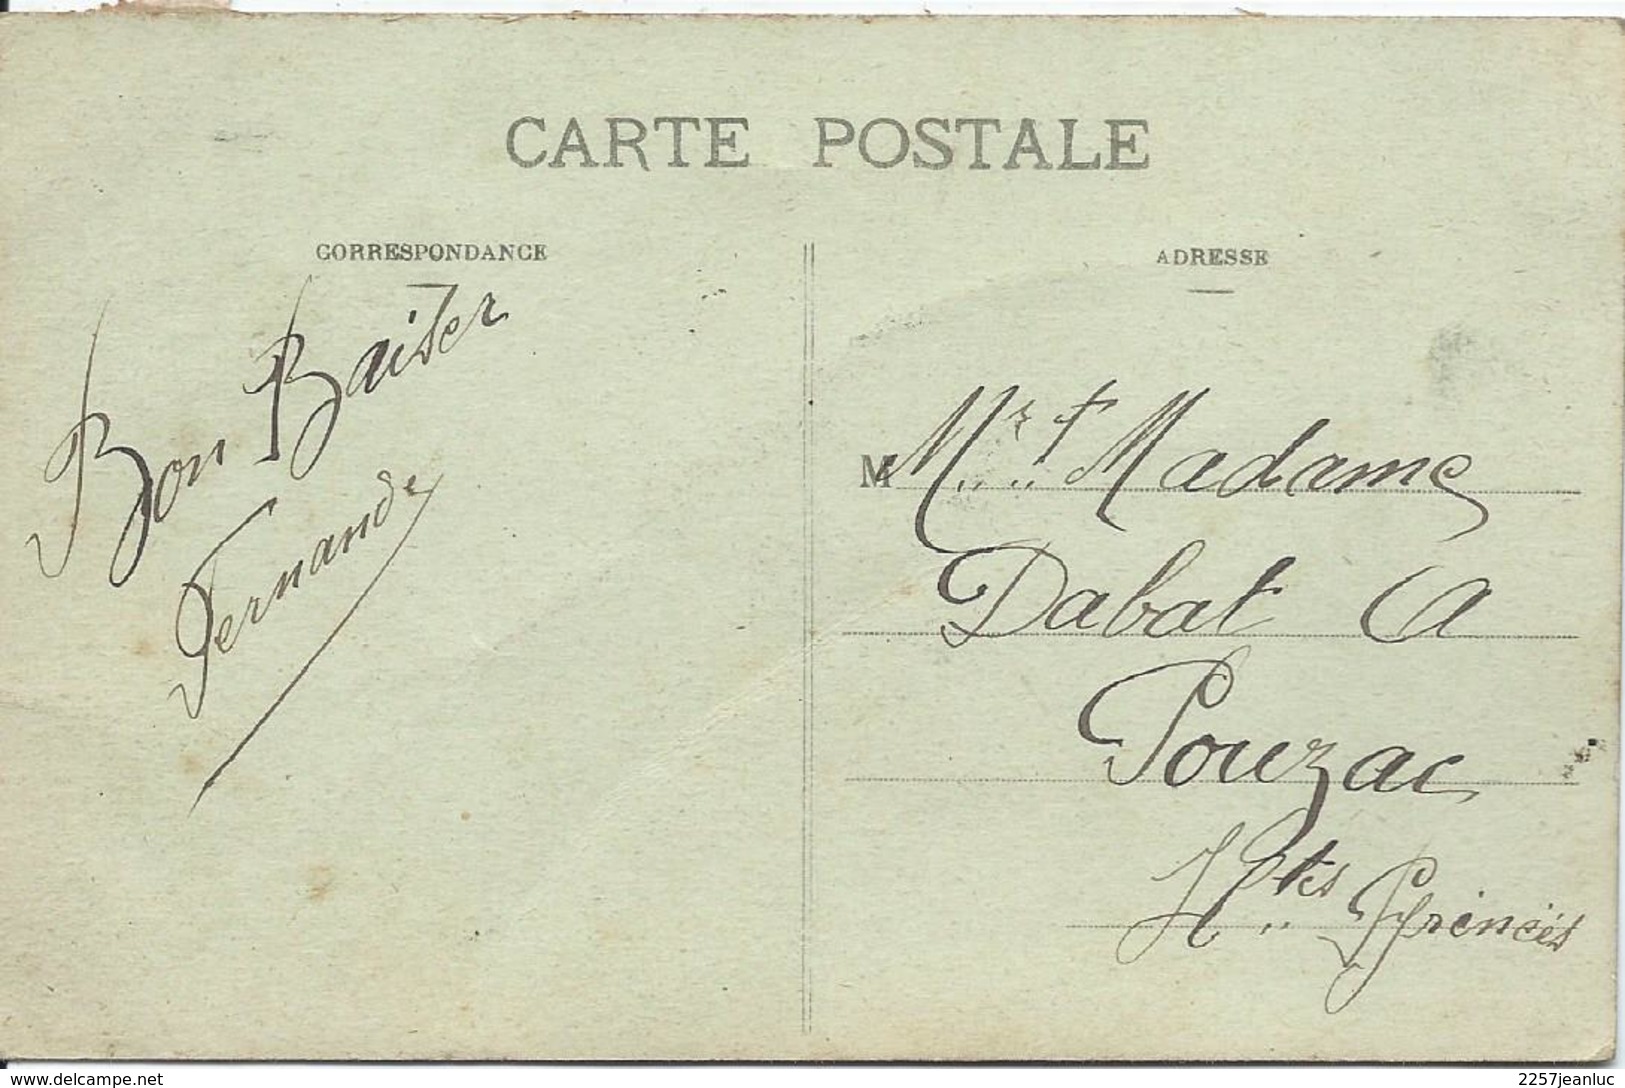 CARTE POSTALE
CORRESPONDANCE
Bon Baiser
Fernande
ADRESSE
M Mr et Madame
Dabat A
Pouzac
Htes Pyrénées
www.delcampe.net
2257jeanluc